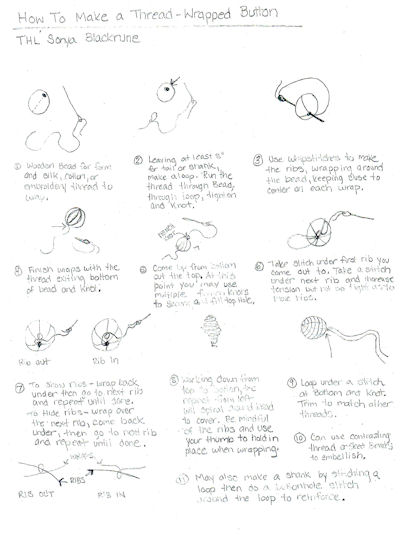 How To Make a Thread-Wrapped Button
THL Sonja Blackrune
① Wooden Bead for form
and silk, cotton, or
embroidery thread to
② Leaving at least 8"
for tail or shank,
make a loop. Run the
thread through Bead,
through loop, tighten
and knot.
③ Use whipstitches to make
the ribs, wrapping around
the bead, keeping close to
center on each wrap.
Finish wraps with the
thread exiting bottom
of bead and knot.
Come up from bottom
out the top. At this
point you may use
multiple
and fill top hole.
⑥ Take stitch under first rib you
came out to. Take a stitch
under next rib and increase
tension but not so tight as to
ribs.
Rib out
Rib in
⑦ To show ribs - wrap back
under then go to next rib
and repeat until done.
To hide ribs - wrap over
the next rib, come back
under, then go to next rib
and repeat until done.
WRAPS
RIBS
RIB OUT
RIB IN
⑧ Working down from
top to bottom, the
repeat from left
will spiral
to cover. Be mindful
of the ribs and use
your thumb to hold in
place when wrapping.
⑨ Loop under a stitch
at bottom and knot.
Trim to match other
threads.
⑩ Can use contrasting
thread or seed beads to
embellish.
⑪ May also make a shank by stitching a
loop then do a buttonhole stitch
around the loop to reinforce.